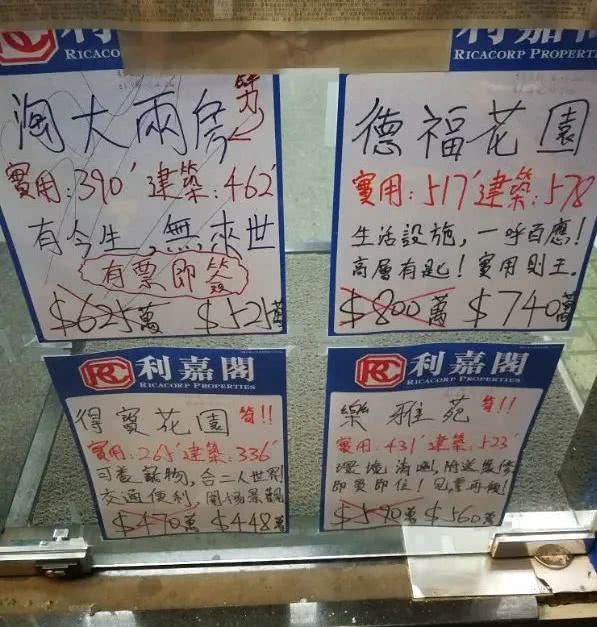 RICACO
利嘉閣
RICACORP PROPERTIES
淘大兩房
實用:390' 建築:462'
有今生,無來世
有票即簽
$625萬 $525萬
德福花園
實用:517' 建築:578
生活設施,一呼百應!
高層有匙!實用則王.
$800萬 $740萬
利嘉閣
RICACORP PROPERTIES
得寶花園 筍!!
實用:265' 建築:336'
可養寵物,合二人世界!
交通便利,開揚景觀
$470萬 $448萬
利嘉閣
RICACORP PROPERTIES
樂雅苑 筍!!
實用:431' 建築:523'
環境清幽,附送裝修
即買即住!
$590萬 $560萬